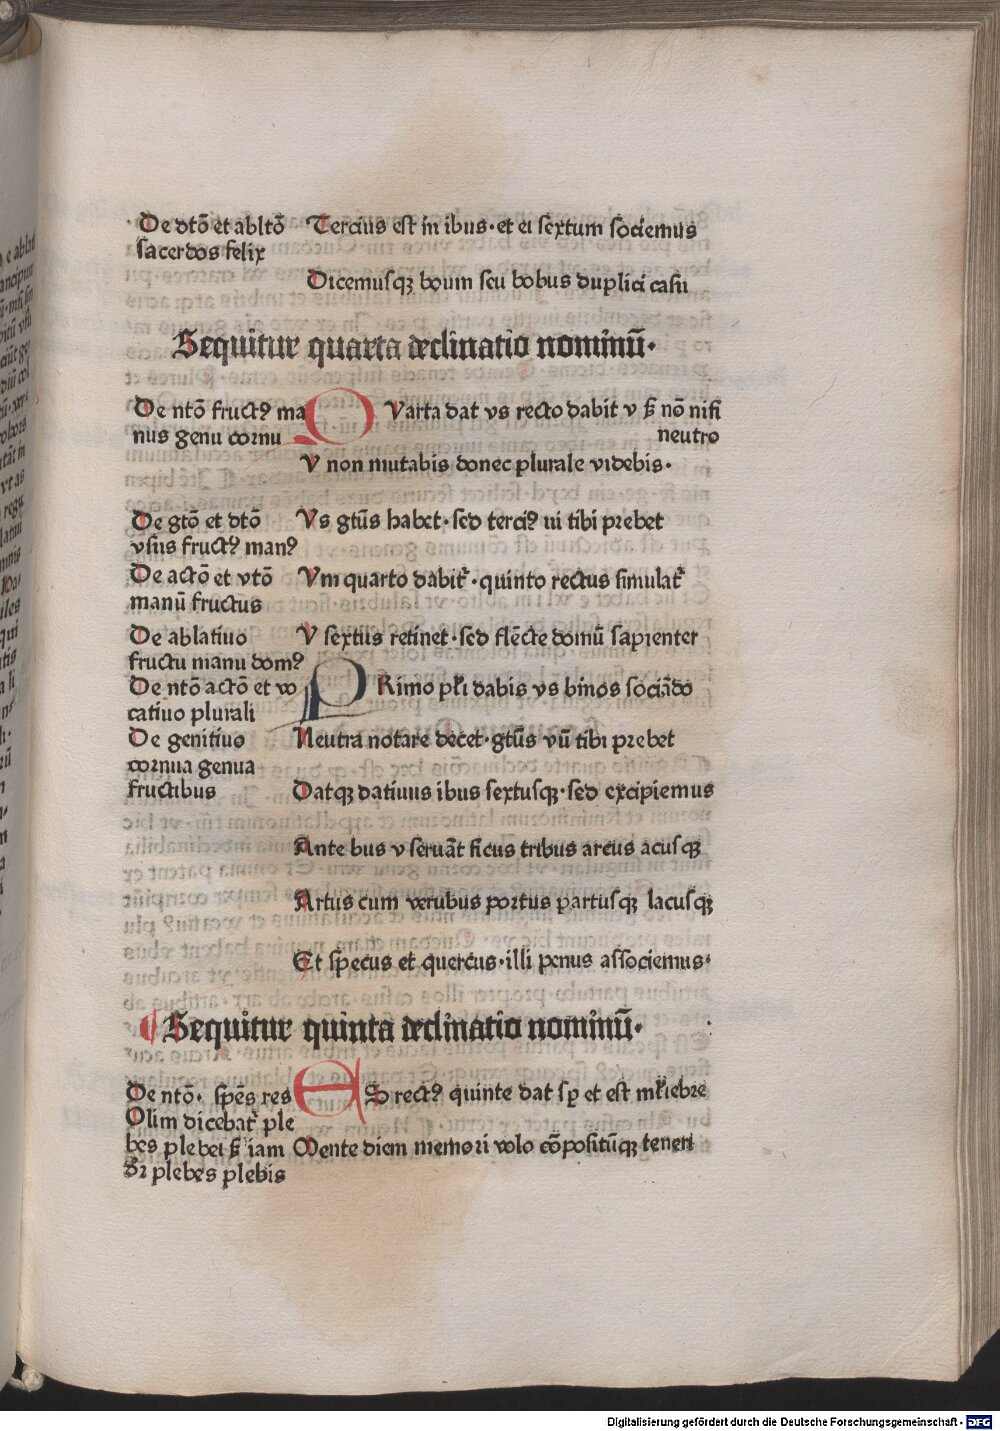 De dtō et abltō Tercius est in ibus· et ei sextum sociemus
sacerdos felix
Dicemusqꝫ boum seu bobus duplici casu
Sequitur quarta declinatio nominū·
De ntō fructꝰ ma QVarta dat vs recto dabit v sꝫ nō nisi
nus genu cornu neutro
V non mutabis donec plurale videbis·
De gtō et dtō Vs gtūs habet· sed terciꝰ ui tibi prebet
vsus fructꝰ manꝰ
De actō et vtō Vm quarto dabit᷑· quinto rectus simulat᷑
manū fructus
De ablatiuo V sextus retinet· sed flēcte domū sapienter
fructu manu domꝰ
De ntō actō et vo PRimo pl̓i dabis vs binos sociādo
catiuo plurali
De genitiuo Neutra notare decet· gtūs vū tibi prebet
cornua genua
fructibus Datqꝫ datiuus ibus sextusqꝫ· sed excipiemus
Ante bus v seruāt ficus tribus arcus acusqꝫ
Artus cum verubus portus partusqꝫ lacusqꝫ
Et specus et quercus· illi penus associemus·
¶ Sequitur quinta declinatio nominū·
De ntō· spēs res ES rectꝰ quinte dat sꝑ et est ml̓iebre
Olim dicebat᷑ ple
bes plebei sꝫ iam Mente diem memori volo cōpositūqꝫ teneri
Sr plebes plebis
Digitalisierung gefördert durch die Deutsche Forschungsgemeinschaft - DFG